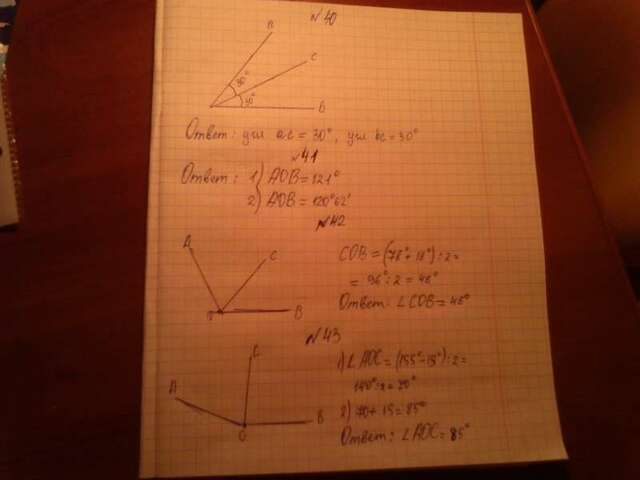 №40
B
C
30°
30°
B
Ответ: угл ac = 30°, угл bc = 30°
№41
Ответ: 1) AOB = 121°
2) AOB = 120°62'
№42
A
C
O
B
COB = (78° + 18°) : 2 =
= 96° : 2 = 48°
Ответ: ∠COB = 48°
№43
C
A
O
B
1) ∠AOC = (155° - 15°) : 2 =
140° : 2 = 70°
2) 70 + 15 = 85°
Ответ: ∠AOC = 85°